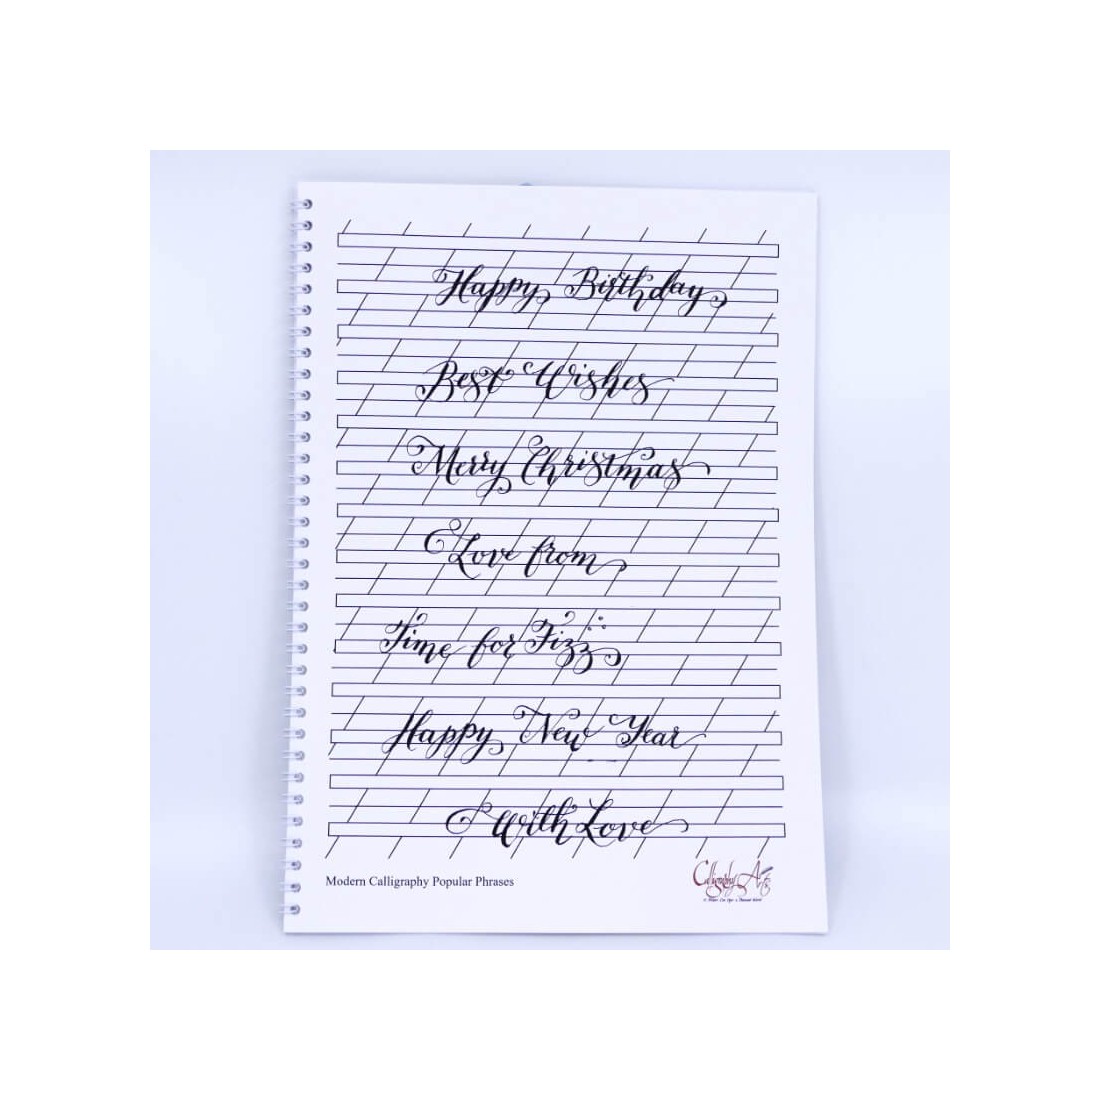 Happy Birthday
Best Wishes
Merry Christmas
Love from
Time for Fizz
Happy New Year
With Love
Modern Calligraphy Popular Phrases
Calligraphy Arts